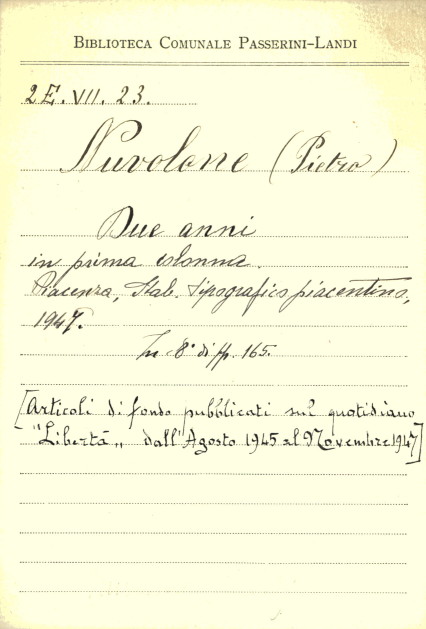 BIBLIOTECA COMUNALE PASSERINI-LANDI
2E. VII. 23.
Nuvolone (Pietro)
Due anni
in prima colonna.
Piacenza, Stab. tipografico piacentino,
1947.
In 8° di pp. 165.
[Articoli di fondo pubblicati sul quotidiano
"Libertà„ dall'Agosto 1945 al Novembre 1947]